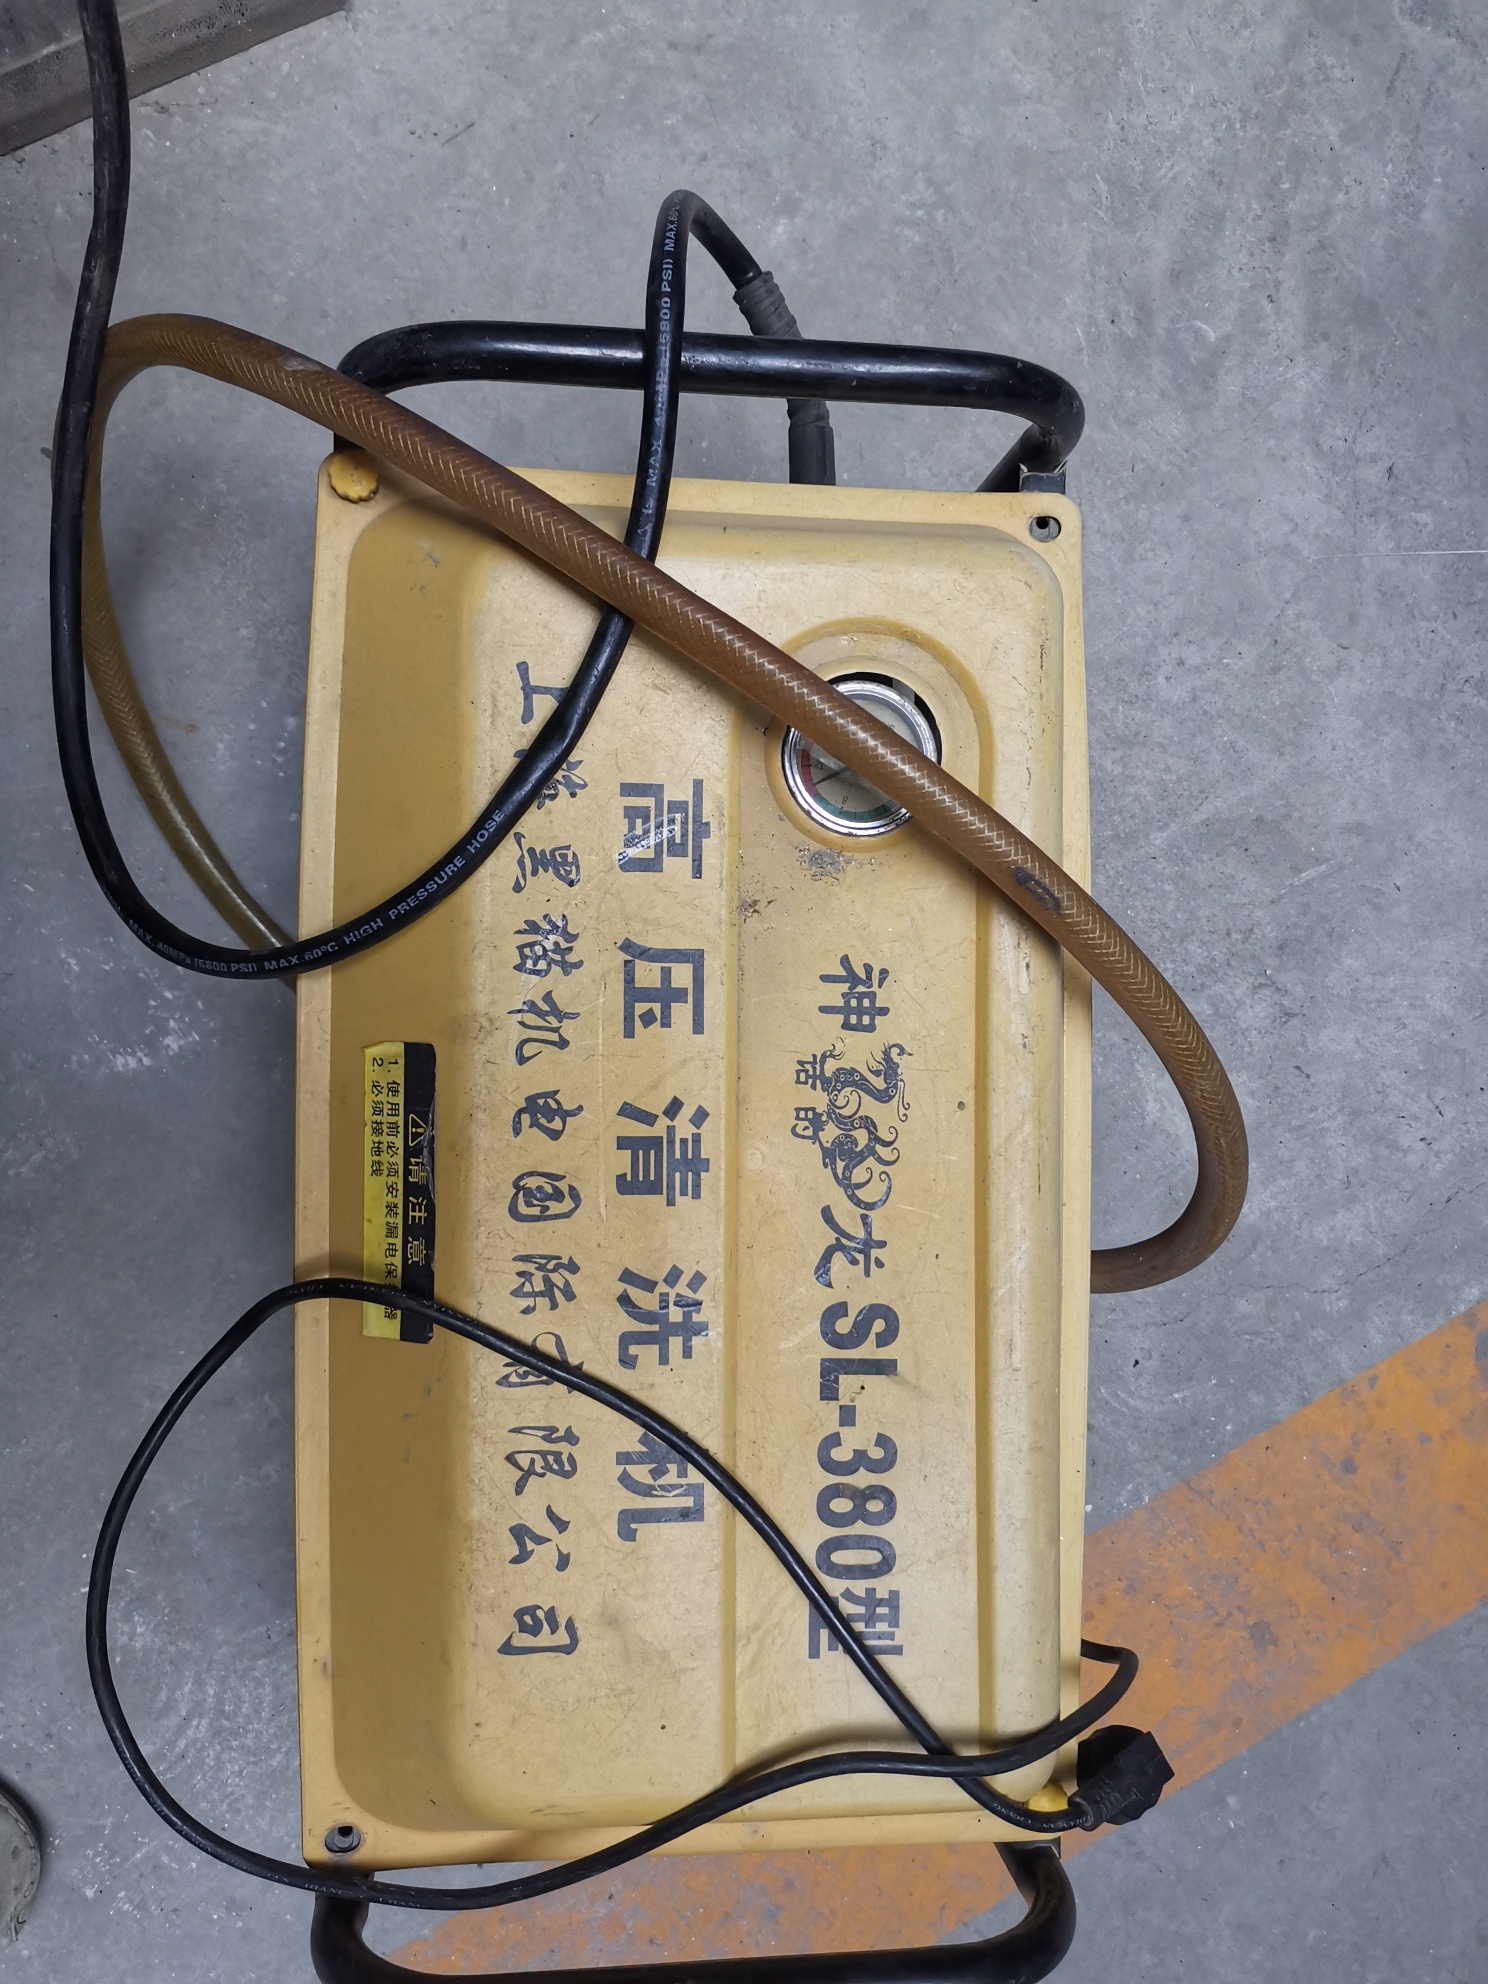 神龙 SL-380型
话的
高压清洗机
上海黑猫机电国际有限公司
请注意
1. 使用前必须安装漏电保护器
2. 必须接地线
MAX. 40MPa (5800 PSI) MAX.60°C HIGH PRESSURE HOSE
(5800 PSI) MAX.60°C